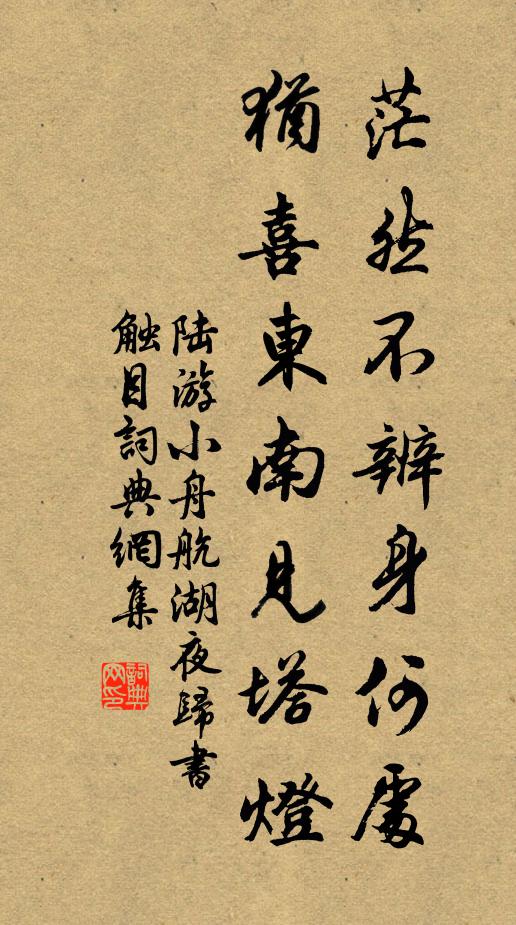 茫然不辨身何處
猶喜東南見塔燈
陆游小舟航湖夜歸書
觸目詞典網集
詞典
网印